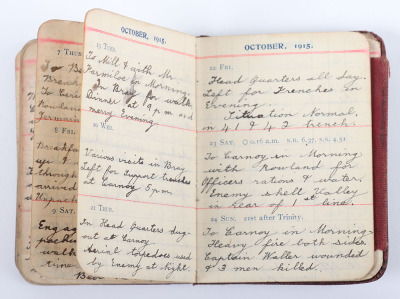 7 THUR
To Be
Break
To Cer
Rowlan
8 FRI.
Breakfa
up
through
arrived
Unpack
9 SAT.
Engag
packe
walk
tune
OCTOBER, 1915.
19 TUES.
To Mill & with Mr.
Farmiloe in Morning.
In Bray for walk
Dinner at 9 p.m. and
merry Evening.
20 WED.
Various visits in Bray
Left for support trenches
at Carnoy 5 p.m.
21 THUR.
In Head Quarters dug-
out at Carnoy
Aerial torpedoes used
by Enemy at Night.
OCTOBER, 1915.
22 FRI.
Head Quarters all day.
Left for Trenches in
Evening.
Situation Normal.
in 41 & 42 trench.
23 SAT. 0.16 A.M. S.R. 6.37, S.S. 4.51
To Carnoy in Morning
with Rowland for
Officers rations & water.
Enemy shell Valley
in rear of 1st line.
24 SUN. 21st after Trinity.
To Carnoy in Morning-
Heavy fire both sides.
Captain Walter wounded
& 3 men killed.